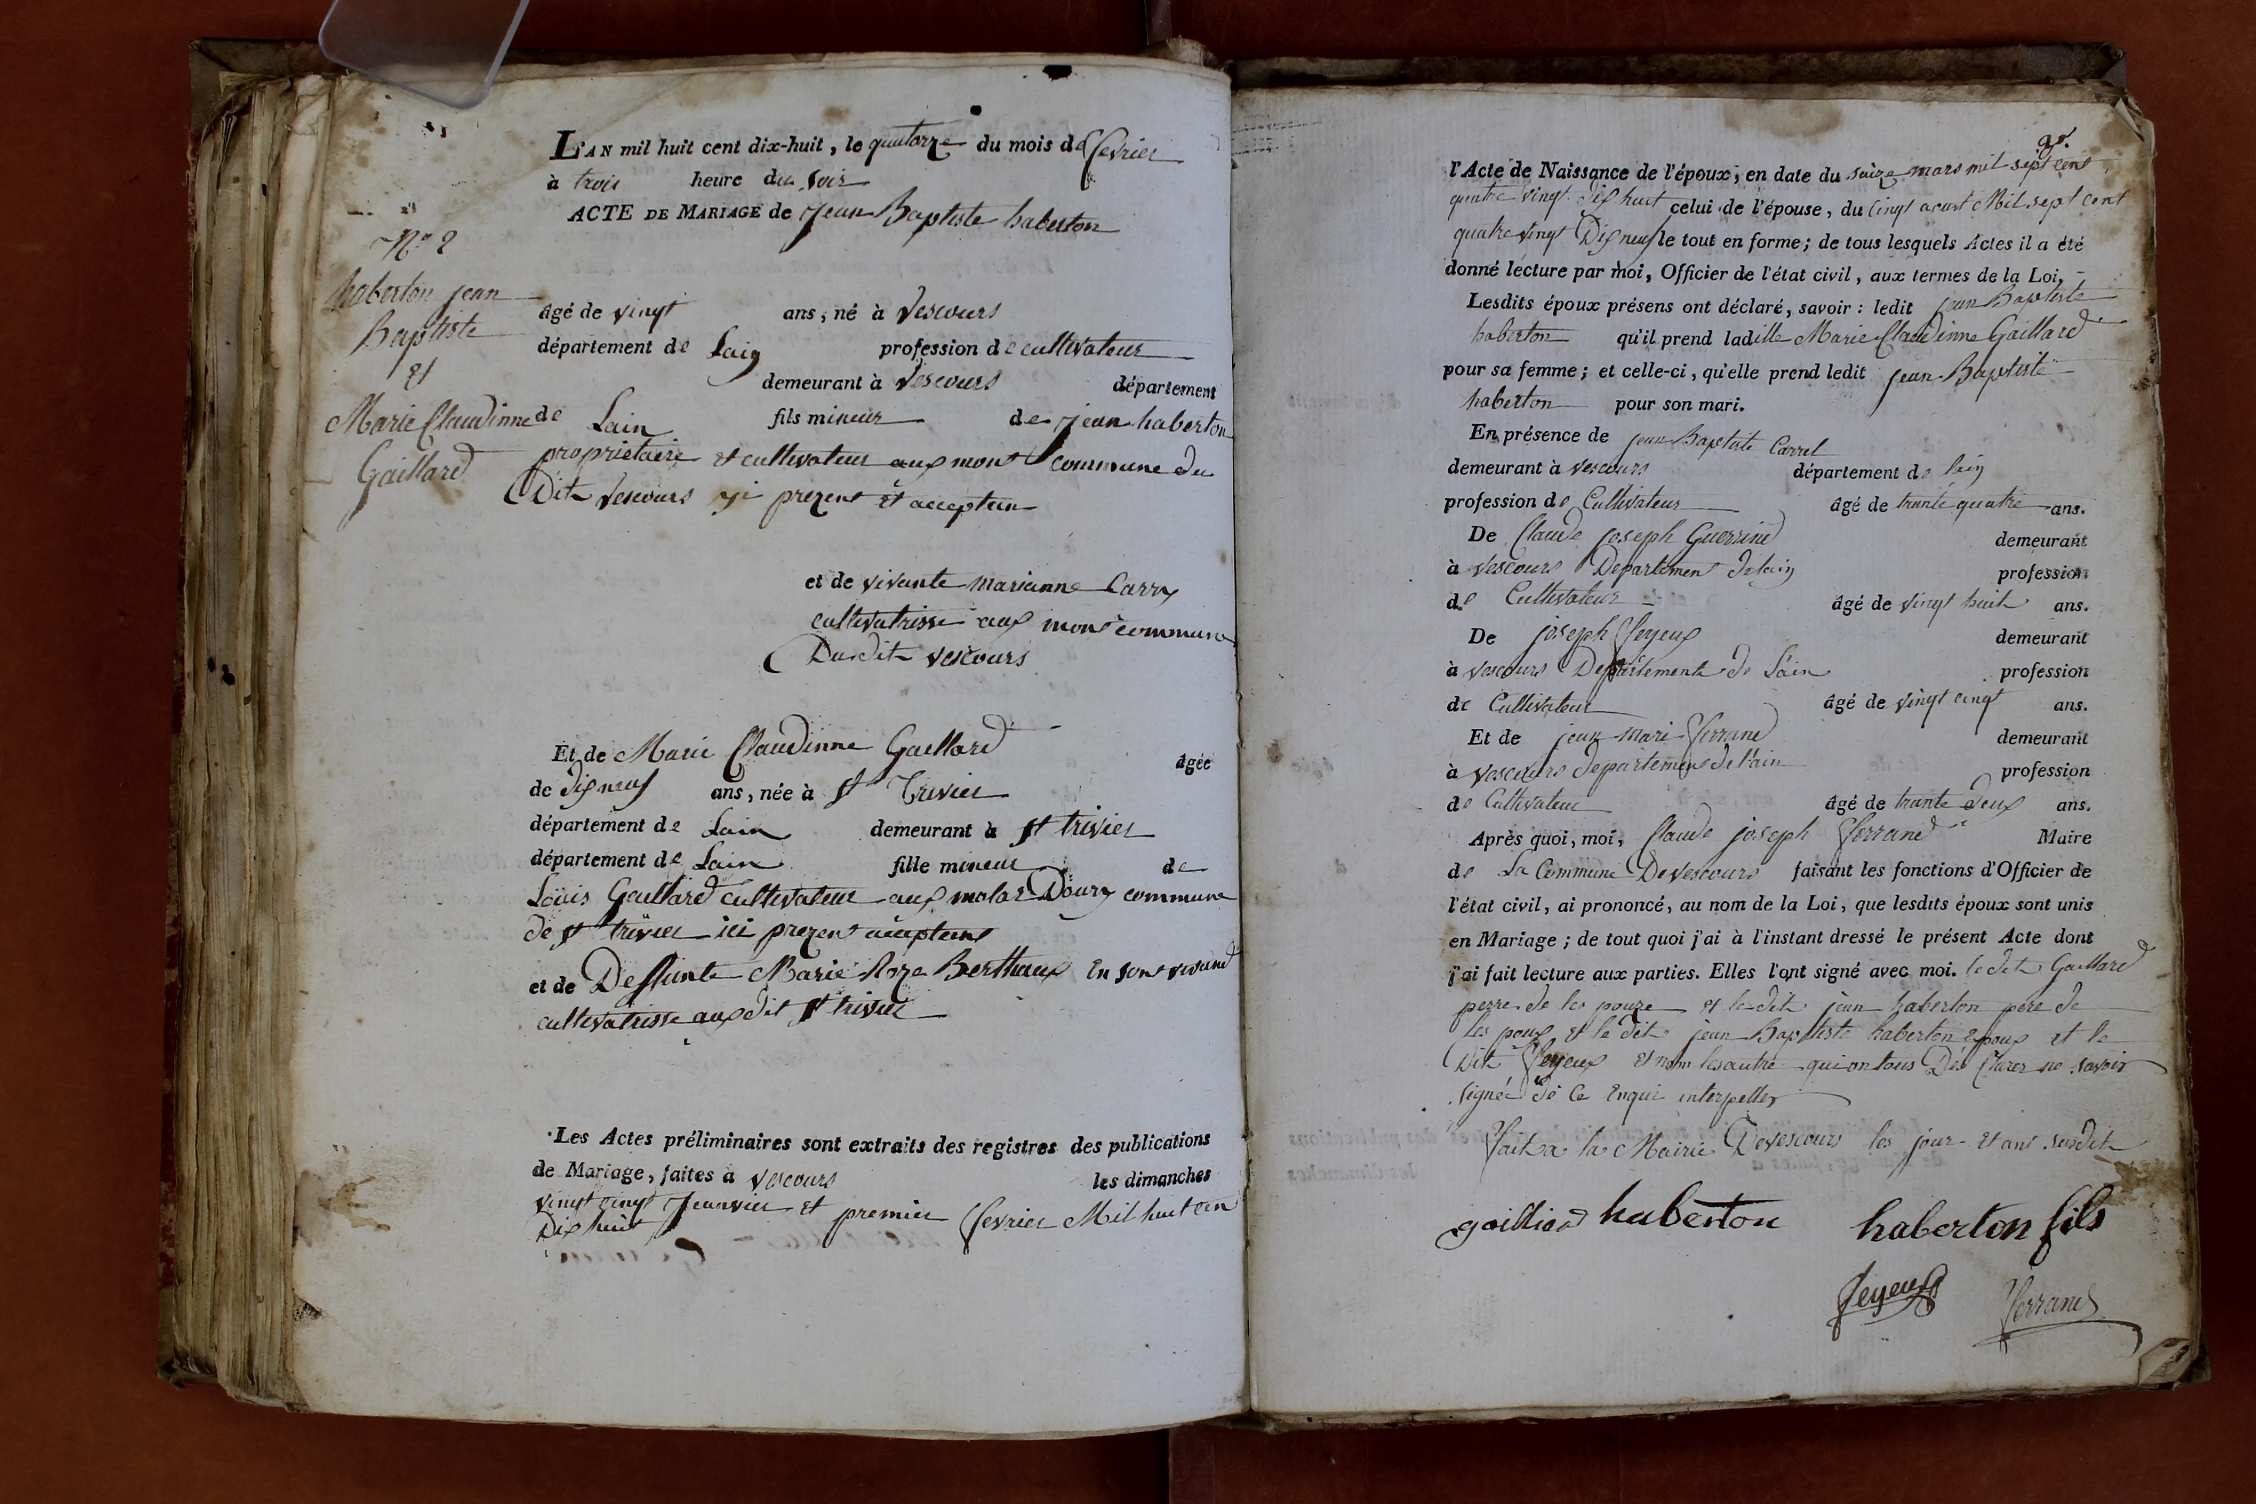 L'AN mil huit cent dix-huit, le quatorze du mois de fevrier
à trois heure du soir
ACTE DE MARIAGE de jean Baptiste haberton
N° 2
haberton jean
Baptiste
et
Marie Claudinne
Gaillard
âgé de vingt ans, né à Vescours
département de Lain profession de cultivateur
demeurant à Vescours département
de Lain fils mineur de jean haberton
proprietaire et cultivateur aux mont commune du
Dit Vescours ici prezent et acceptan
et de vivante marianne Carry
cultivatrisse aux mont commune
Dudit vescours
Et de Marie Claudinne Gaillard âgée
de disneuf ans, née à st Trivier
département de Lain demeurant à st trivier
département de Lain fille mineur de
Loüis Gaillard cultivateur aux molar Doury commune
de st trivier ici prezent aceptant
et de Deffunte Marie Roze Berthaux En son vivand
cultivatrisse aux dit st trivier
Les Actes préliminaires sont extraits des registres des publications
de Mariage, faites à Vescours les dimanches
vingt cinqt Jeanvier et premier fevrier Mil huit cen
Dix huit
3e.
l'Acte de Naissance de l'époux, en date du saize mars mil sept cent
quatre vingt dix huit celui de l'épouse, du cinqt acust Mil sept cent
quatre vingt Dix neuf le tout en forme; de tous lesquels Actes il a été
donné lecture par moi, Officier de l'état civil, aux termes de la Loi,
Lesdits époux présens ont déclaré, savoir: ledit jean Baptiste
haberton qu'il prend ladille Marie Claudinne Gaillard
pour sa femme; et celle-ci, qu'elle prend ledit jean Baptiste
haberton pour son mari.
En présence de jean Baptiste Carrel
demeurant à vescours département de lain
profession de Cultivateur âgé de trante quatre ans.
De Claude joseph Guerrind demeurant
à Vescours Departement de lain profession
de Cultivateur âgé de vingt huit ans.
De joseph feyeux demeurant
à vescours Departement de Lain profession
de Cultivateur âgé de vingt cinqt ans.
Et de jean mari ferrand demeurant
à vescours departement de l'ain profession
de Cultivateur âgé de trante deux ans.
Après quoi, moi, Claude joseph ferrand Maire
de La Commune De vescours faisant les fonctions d'Officier de
l'état civil, ai prononcé, au nom de la Loi, que lesdits époux sont unis
en Mariage; de tout quoi j'ai à l'instant dressé le présent Acte dont
j'ai fait lecture aux parties. Elles l'ont signé avec moi. le dit Gaillard
perre de les pouze et le dit jean haberton pere de
les poux et le dit jean Baptiste haberton Epoux et le
Dit feyeux et nom les autre qui on tous De Clarer ne savoir
signée de ce Enqui interpeller
fait a la Mairie De vescours les jour et ant susdit
goilliard haberton haberton fils
feyeux ferrand